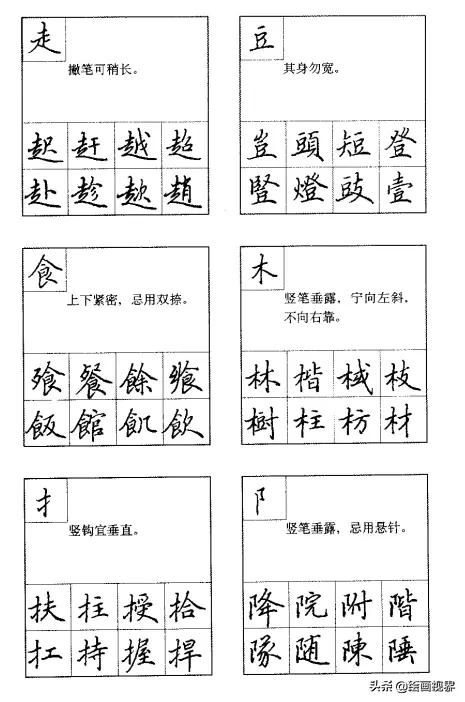 走
撇笔可稍长。
起 赶 越 超
赴 趁 趙
豆
其身勿宽。
豈 頭 短 登
豎 燈 豉 壹
食
上下紧密，忌用双捺。
餐 餘
飯 館 飢 飲
木
竖笔垂露，宁向左斜，
不向右靠。
林 楷 械 枝
樹 柱 枋 材
扌
竖钩宜垂直。
扶 拄 授 拾
扛 持 握 捍
阝
竖笔垂露，忌用悬针。
降 院 附 階
隊 随 陳 陲
头条 @绘画视界